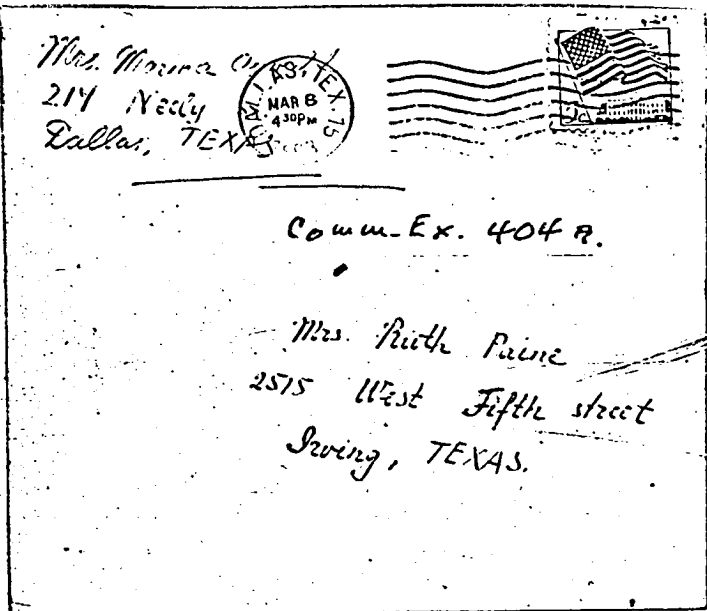 Mrs. Marina
214 Neely
Dallas, TEXAS
DALLAS, TEX. 15
MAR 8
430PM
Comm-Ex. 404 A.
Mrs. Ruth Paine
2515 West Fifth street
Irving, TEXAS.